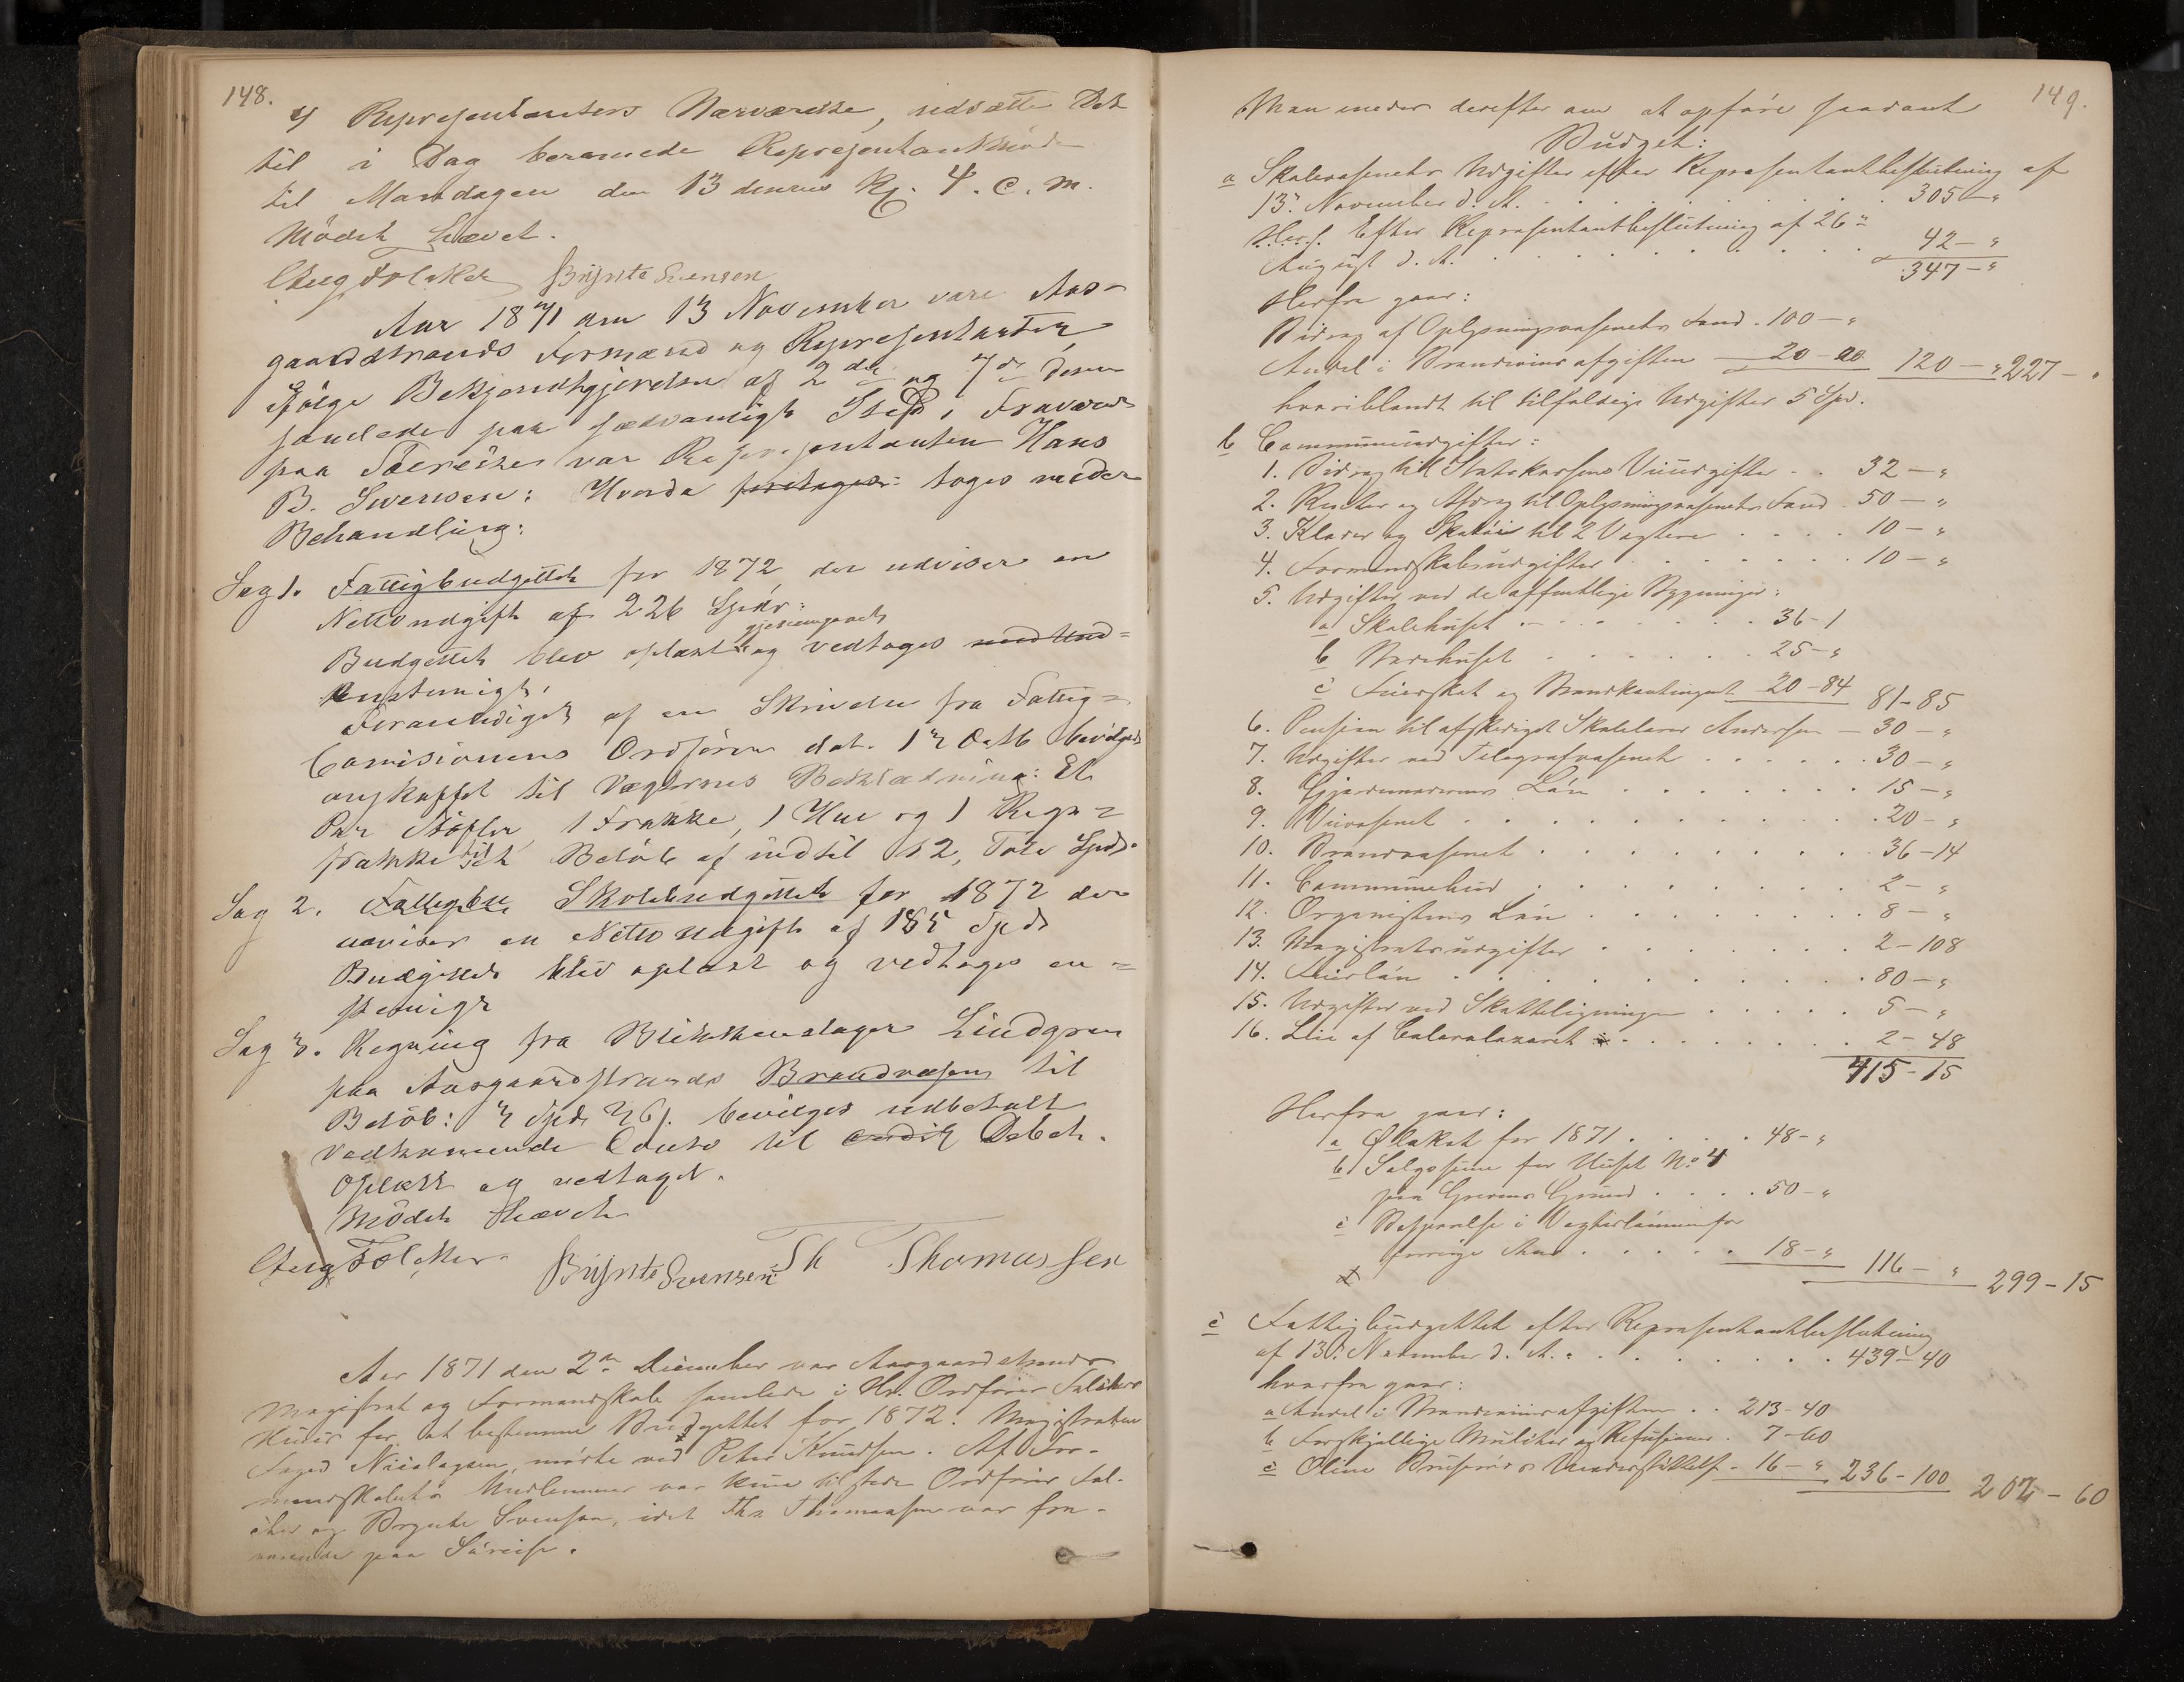 148.
4 Representanters Nærværelse, udsættes Det
til i Dag berammede Representantmøde
til Mandagen den 13 dennes Kl. 4. e. m.
Mödet hævet.
Chrig Folcker Brynte Svensen
Aar 1871 den 13 November vare Aas-
gaardstrands Formænd og Representanter
ifölge Bekjendtgjörelse af 2den og 7de dennes
samlede paa sædvanligt Sted, Fraværende
paa Söereise var Representanten Hans
B. Svensen: Hvorda foretages: toges under
Behandling:
Sag 1. Fattigbudgettet for 1872, der udviser en
Nettoudgift af 226 Spdr:
gjennemgaaet
Budgettet blev oplæst og vedtoges med End=
Enstemigt.
Foranlediget af en Skrivelse fra Fattig=
Comisionens Ordförer dat. 12 Octb bevilges
anskaffet til Vægternes Beklædning: Et
Par Stöfler, 1 Frakke, 1 Hue og 1 Regn=
frakke til et Belöb af indtil 12, Tolv Spd.
Sag 2. Fattigbu Skolebudgettet for 1872 der
udviser en Netto Udgift af 185 Spd
Budgettet blev oplæst og vedtoges en=
stemigt
Sag 3. Regning fra Blikkenslager Lindgren
paa Aasgaardstrands Brandvæsen til
Belöb: 3 Spd 36 s. bevilges udbetalt
vedkommende Conto til credit Debet.
Oplæst og vedtaget.
Mödet Hævet
Chrig Folcker Brynte Svensen Th Thomassen
Aar 1871 den 2den December var Aasgaardstrands
Magistrat og Formandskab samlede i Hr. Ordförer Folckers
Huus for at bestemme Budgettet for 1872. Magistraten
Foged Nicolaysen, mödte ved Peter Knudsen. Af For-
mandskabets Medlemmer var kun tilstede Ordförer Fol-
cker og Brynte Svensen, idet Ths Thomassen var fra-
værende paa Söreise.
149.
Man enedes derefter om at opföre saadant
Budget:
a Skolevæsenets Udgifter efter Repræsentantbeslutning af
13de November d. A. . . . . . . . . . . 305 — "
Herf. Efter Repræsentantbeslutning af 26de
August d. A. . . . . . . . . . . . 42 — "
347 — "
Herfra gaar:
Bidrag af Oplysningsvæsenets Fond . 100 — "
Andel i Brændeviinsafgiften — 20 — 00 120 — " 227 — "
hvoriblandt til tilfældige Udgifter 5 Spd.
b Communeudgifter:
1. Bidrag til Statskassens Veiudgifter . . 32 — "
2. Renter og Afdrag til Oplysningsvæsenets Fond . 50 — "
3. Klæder og Skotöi til 2 Vægtere . . . . 10 — "
4. Formandskabsudgifter . . . . . . . 10 — "
5. Udgifter ved de offentlige Bygninger:
a Skolehuset . — . . . . . . . 36-1
b Raadhuset . . . . . . . 25 — "
c Feierskat og Brandkontingent 20-84 81-85
6. Pension til afskediget Skolelærer Andersen — 30 — "
7. Udgifter ved Telegrafvæsenet . . . . . . 30 — "
8. Gjordemoderens Lön . . . . . . . . 15 — "
9. Veivæsenet . . . . . . . . . . . 20 — "
10. Brandvæsenet . . . . . . . . . 36-14
11. Communebud . . . . . . . . . 2 — "
12. Organistens Lön . . . . . . . . 8 — "
13. Magistratsudgifter . . . . . . . 2-108
14. Feierlön . . . . . . . . . . . 80 — "
15. Udgifter ved Skatteligningen . . . . . 5 — "
16. Leie af Coleralazaret . . . . . . . . 2-48
415-15
Herfra gaar:
a Ølskat for 1871 . . . . 48 — "
b Salgssum for Huset No 4
paa Grevens Grund . . . . 50 — "
c Besparelse i Vægterlönnen for
forrige Aar . . . . . 18 — " 116 — " 299-15
c Fattigbudgettet efter Repræsentantbeslutning
af 13de November d. A. . . . . . . . . 439-40
hvorfra gaar:
a Andel i Brændeviinsafgiften . . 213-40
b Forskjellige Mulkter og Refusioner . 7-60
c Oline Bruserøds Understöttelse - 16 — " 236-100 202-60